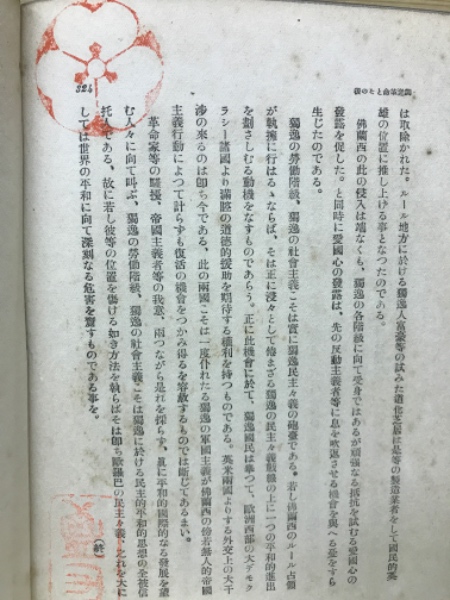 獨逸革命とその後
324
は取除かれた。ルール地方に於ける獨逸人富豪等の試みた道化芝居は是等の製造業者をして國民的英
雄の位置に推し上げる事となつたのである。
佛蘭西の此の侵入は端なくも、獨逸の各階級に向て受身ではあるが頑强なる抵抗を試むる愛國心の
發露を促した。と同時に愛國心の發露は、先の反動主義者等に息を吹返させる機會を與へる
生じたのである。
獨逸の勞働階級、獨逸の社會主義こそは實に獨逸民主々義の砲臺である。若し佛蘭西のルール占領
が執拗に行はるゝならば、そは正に浸々として倦まざる獨逸の民主々義の上に一つの平和的進出
を劃さしむる動機をなすものであらう。正に此機會に於て、獨逸國民は擧つて、歐洲西部の大デモク
ラシー諸國より滿腔の道德的援助を期待する權利を持つものである。英米兩國よりする外交上の大干
涉の來るのは卽ち今である、此の兩國こそは一度仆れたる獨逸の軍國主義が佛蘭西の傍若無人的帝國
主義行動によつて計らずも復活の機會をつかみ得るを容赦するものでは斷じてあるまい。
革命家等の騷擾、帝國主義者等の我意、兩つながら是れを採らず、眞に平和的國際的なる發展を望
む人々に向て叫ぶ、獨逸の勞働階級、獨逸の社會主義こそは獨逸に於ける民主的平和的思想の全被信
托人である、故に若し彼等の位置を傷ける如き方法を執らばそは卽ち歐羅巴の民主々義、之れを大に
しては世界の平和に向て深刻なる危害を齎すものである事を。
(終)